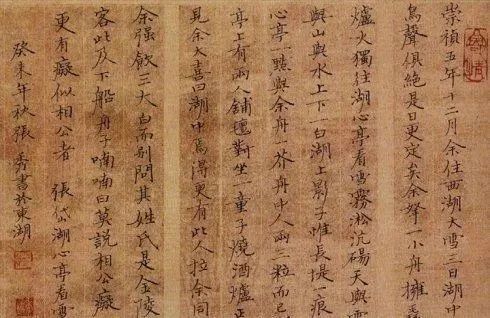 崇禎五年十二月余住西湖大雪三日湖中
鳥聲俱絕是日更定矣余拏一小舟擁
爐火獨往湖心亭看雪霧淞沆碭天與雲
與山與水上下一白湖上影子惟長堤一痕
心亭一點與余舟一芥舟中人兩三粒而已
亭上有兩人鋪氈對坐一童子燒酒爐正
見余大喜曰湖中焉得更有此人拉余同
余強飲三大白而別問其姓氏是金陵
客此及下船舟子喃喃曰莫說相公癡
更有癡似相公者 張岱湖心亭看雪
癸未年秋張秀書於東湖